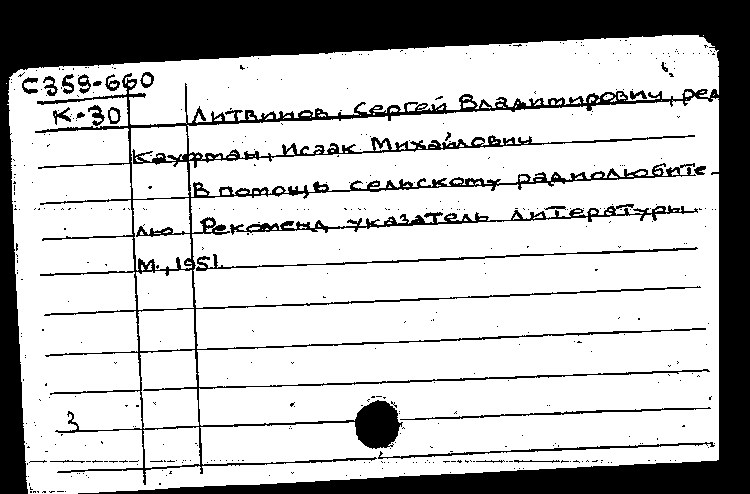 С359-660
К-30
Литвинов, Сергей Владимирович, ред
Кауфман, Исаак Михайлович
В помощь сельскому радиолюбите-
лю. Рекоменд. указатель литературы.
М., 1951.
3